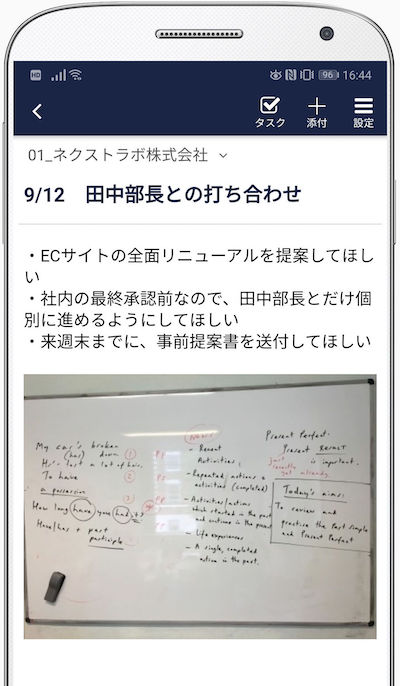 HD
96
16:44
タスク
添付
設定
01_ネクストラボ株式会社
9/12 田中部長との打ち合わせ
・ECサイトの全面リニューアルを提案してほし
い
・社内の最終承認前なので、田中部長とだけ個
別に進めるようにしてほしい
・来週末までに、事前提案書を送付してほしい
My car's broken
(has) down. ①
He's lost a lot of hair.
To have ②
a possession ③
How long have you had it?
Have/has + past
participle
PP
PP
PP
- Recent
Activities
- Repeated actions &
activities (completed)
- Activities/actions
which started in the past
and continue in the present
- Life experiences
- A single, completed
action in the past.
Present Perfect.
Present RESULT
is important.
just
recently
yet already
Today's aims:
To review and
practice the Past Simple
and Present Perfect